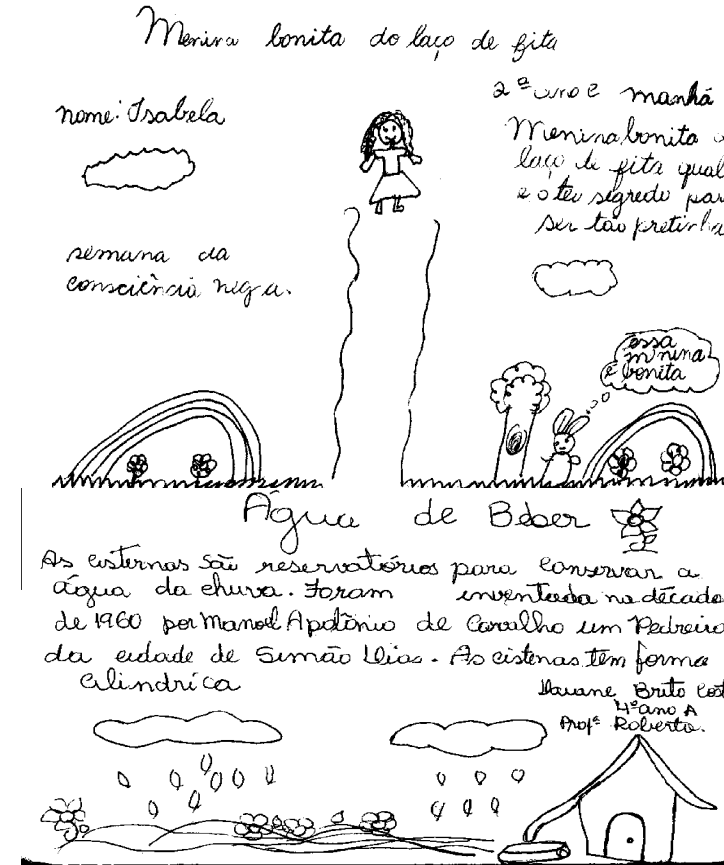 Menina bonita do laço de fita
nome: Isabela
2º ano e manhã
Menina bonita
laço de fita qual
e o teu segredo par
ser tão pretinha
semana da
consciência negra.
essa
minina
é bonita
Água de Beber
As cisternas são reservatórios para conservar a
água da chuva. Foram inventada na década
de 1960 por Manoel Apolônio de Carvalho um Pedreiro
da cidade de Simão Dias. As cistenas tem forma
cilindrica
Brito Cost
4º ano A
Profª Roberta.